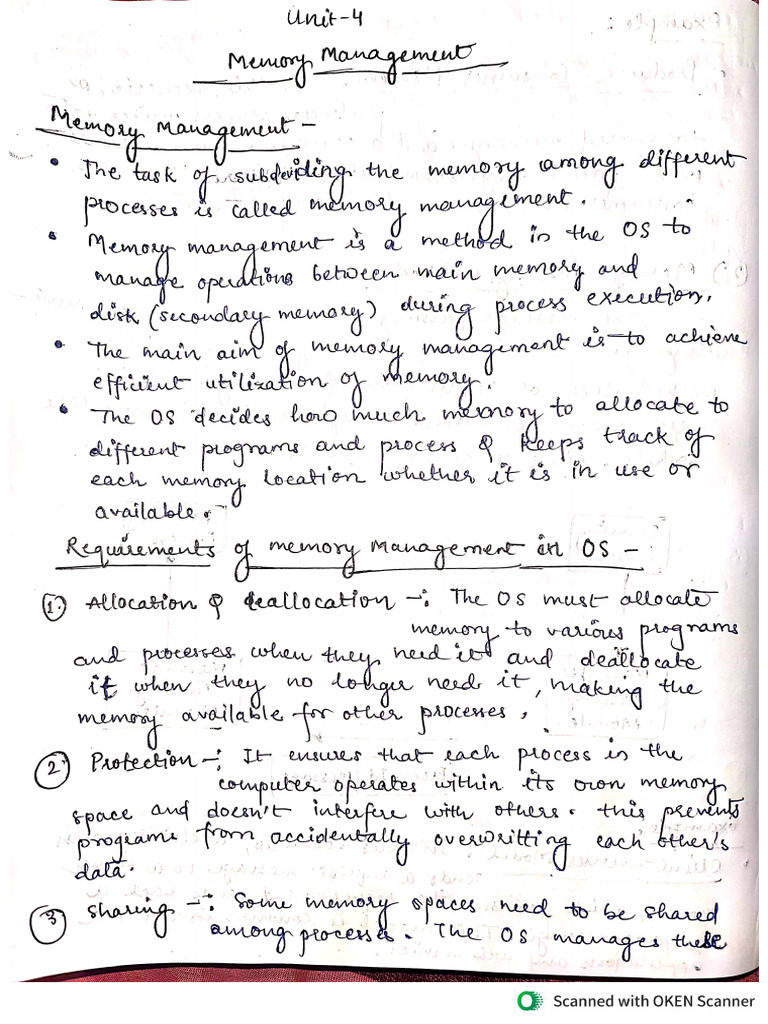 Unit-4
Memory Management
Memory Management -
• The task of subdeviding the memory among different
processes is called memory management.
• Memory management is a method in the OS to
manage operations between main memory and
disk (secondary memory) during process execution.
• The main aim of memory management is to achieve
efficient utilization of memory.
• The OS decides how much memory to allocate to
different programs and process & keeps track of
each memory location whether it is in use or
available.
Requirements of memory management in OS -
1. Allocation & deallocation -: The OS must allocate
memory to various programs
and processes when they need it and deallocate
it when they no longer need it, making the
memory available for other processes,
2. Protection -: It ensures that each process in the
computer operates within its own memory
space and doesn't interfere with others. this prevents
programs from accidentally overwritting each other's
data.
3 Sharing -: Some memory spaces need to be shared
among processes. The OS manages these
Scanned with OKEN Scanner